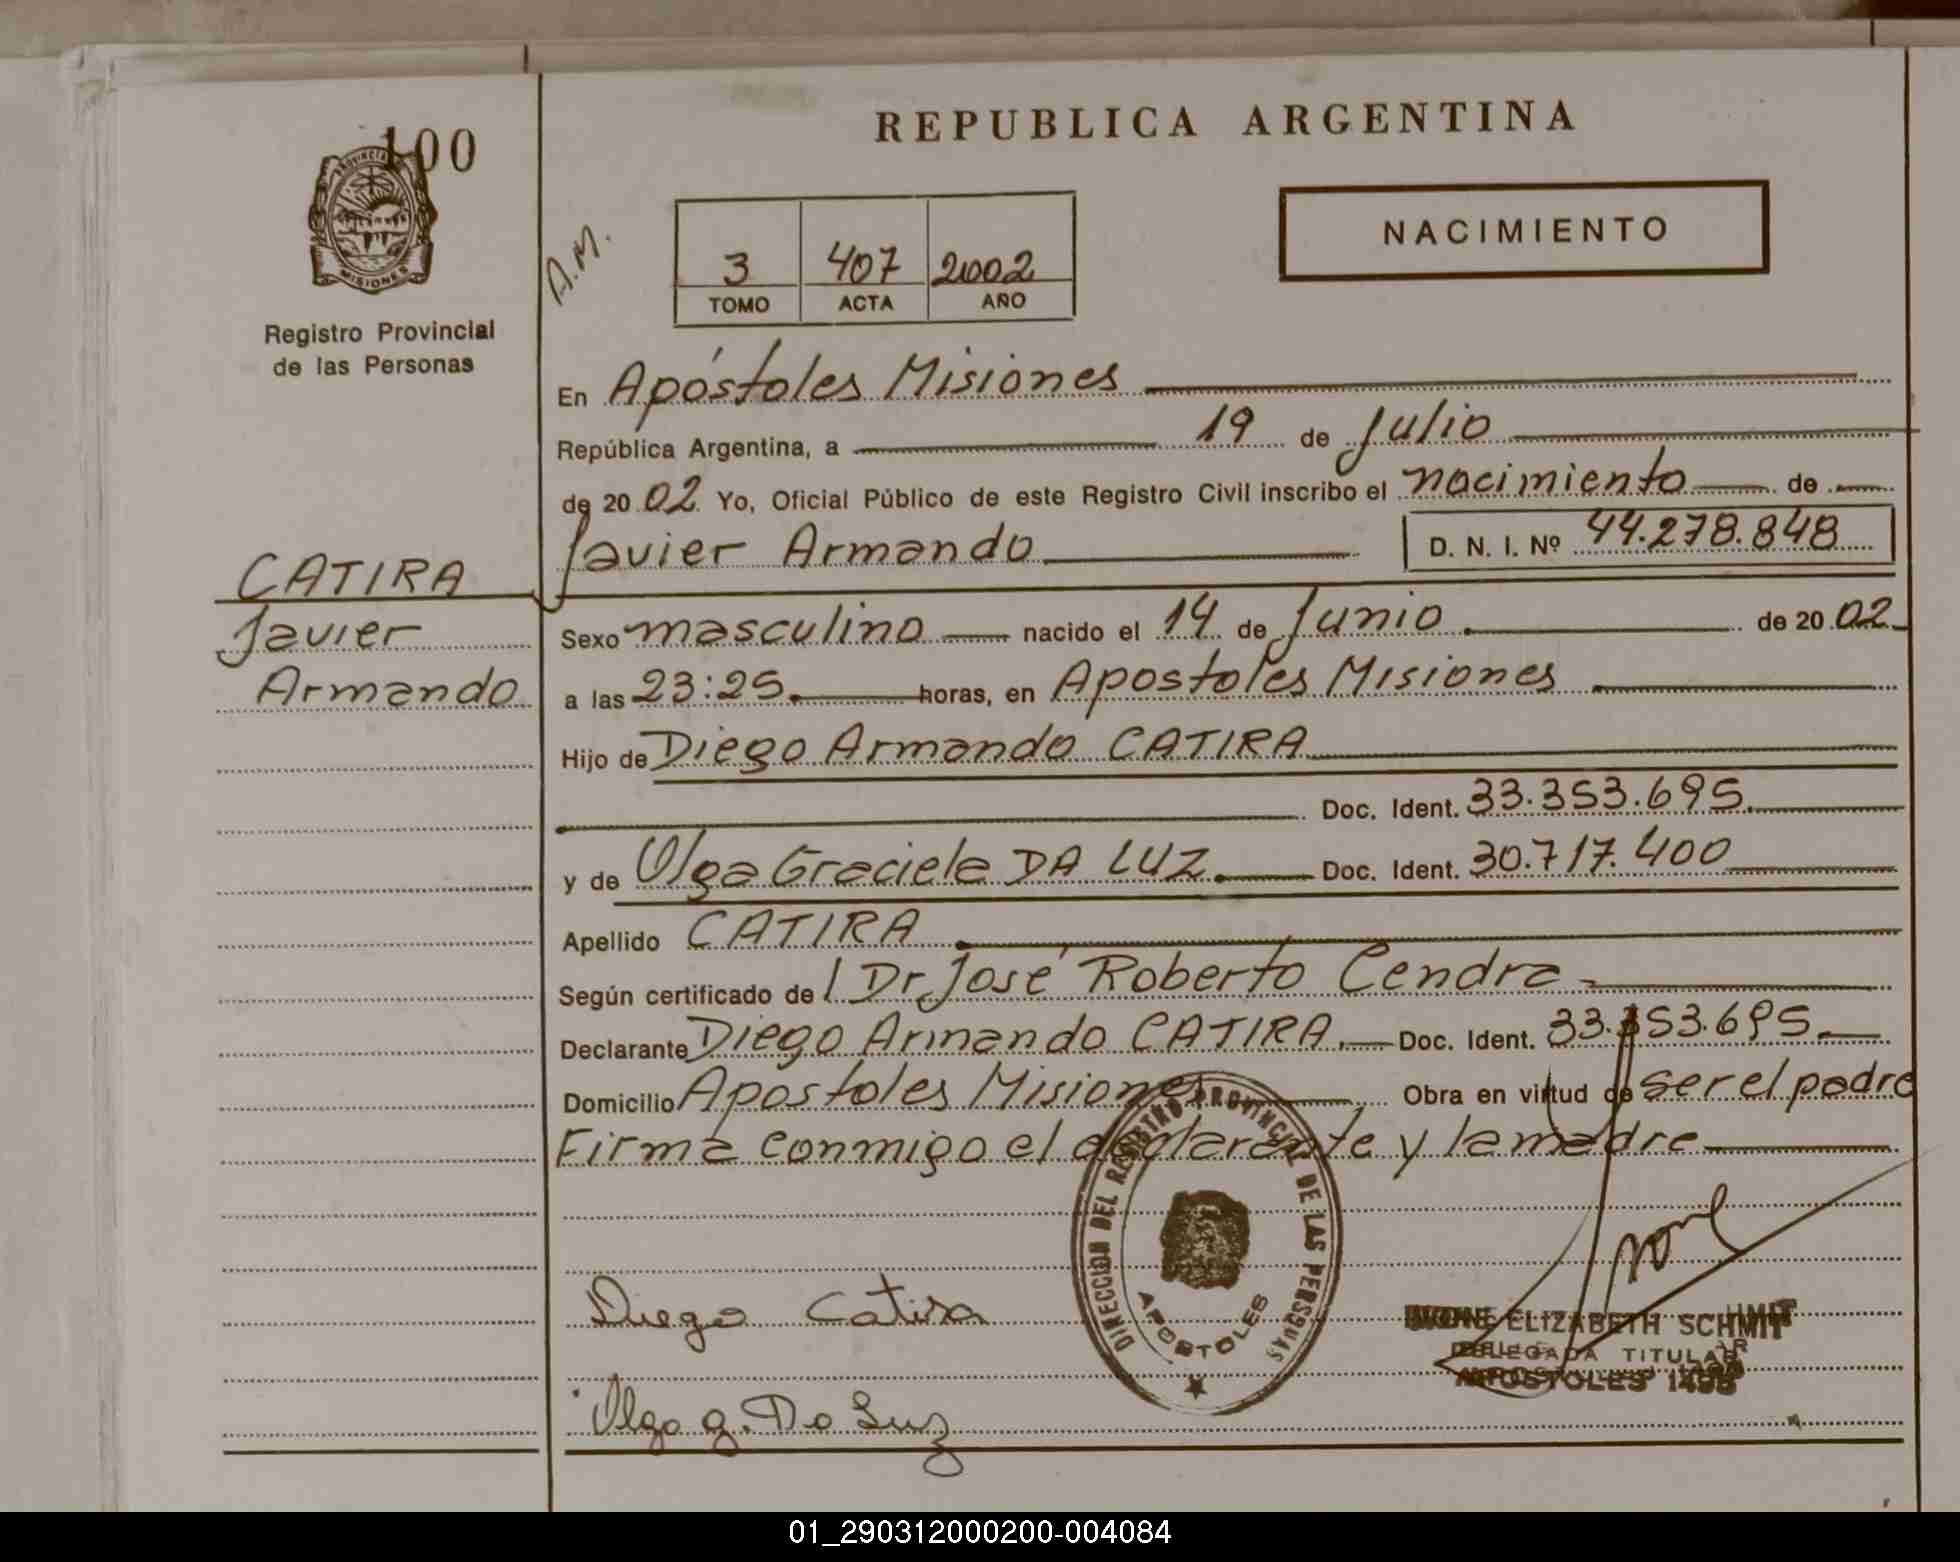 100
PROVINCIA
MISIONES
Registro Provincial
de las Personas
REPUBLICA ARGENTINA
A.M.
3 407 2002
TOMO ACTA AÑO
NACIMIENTO
En Apóstoles Misiones
República Argentina, a 19 de Julio
de 20 02 Yo, Oficial Público de este Registro Civil inscribo el nacimiento de
Javier Armando D. N. I. Nº 44.278.848
CATIRA
Javier
Armando
Sexo masculino nacido el 14 de Junio de 20 02
a las 23:25 horas, en Apostoles Misiones
Hijo de Diego Armando CATIRA
Doc. Ident. 33.353.695
y de Olga Graciela DA LUZ Doc. Ident. 30.717.400
Apellido CATIRA
Según certificado de l Dr José Roberto Cendra
Declarante Diego Armando CATIRA Doc. Ident. 33.353.695
Domicilio Apostoles Misiones Obra en virtud de ser el padre
Firma conmigo el declarante y la madre
DIRECCION DEL REGISTRO PROVINCIAL DE LAS PERSONAS
APOSTOLES
Diego Catira
Olga G. Da Luz
IVONE ELIZABETH SCHMIT
DELEGADA TITULAR
APOSTOLES
01_290312000200-004084